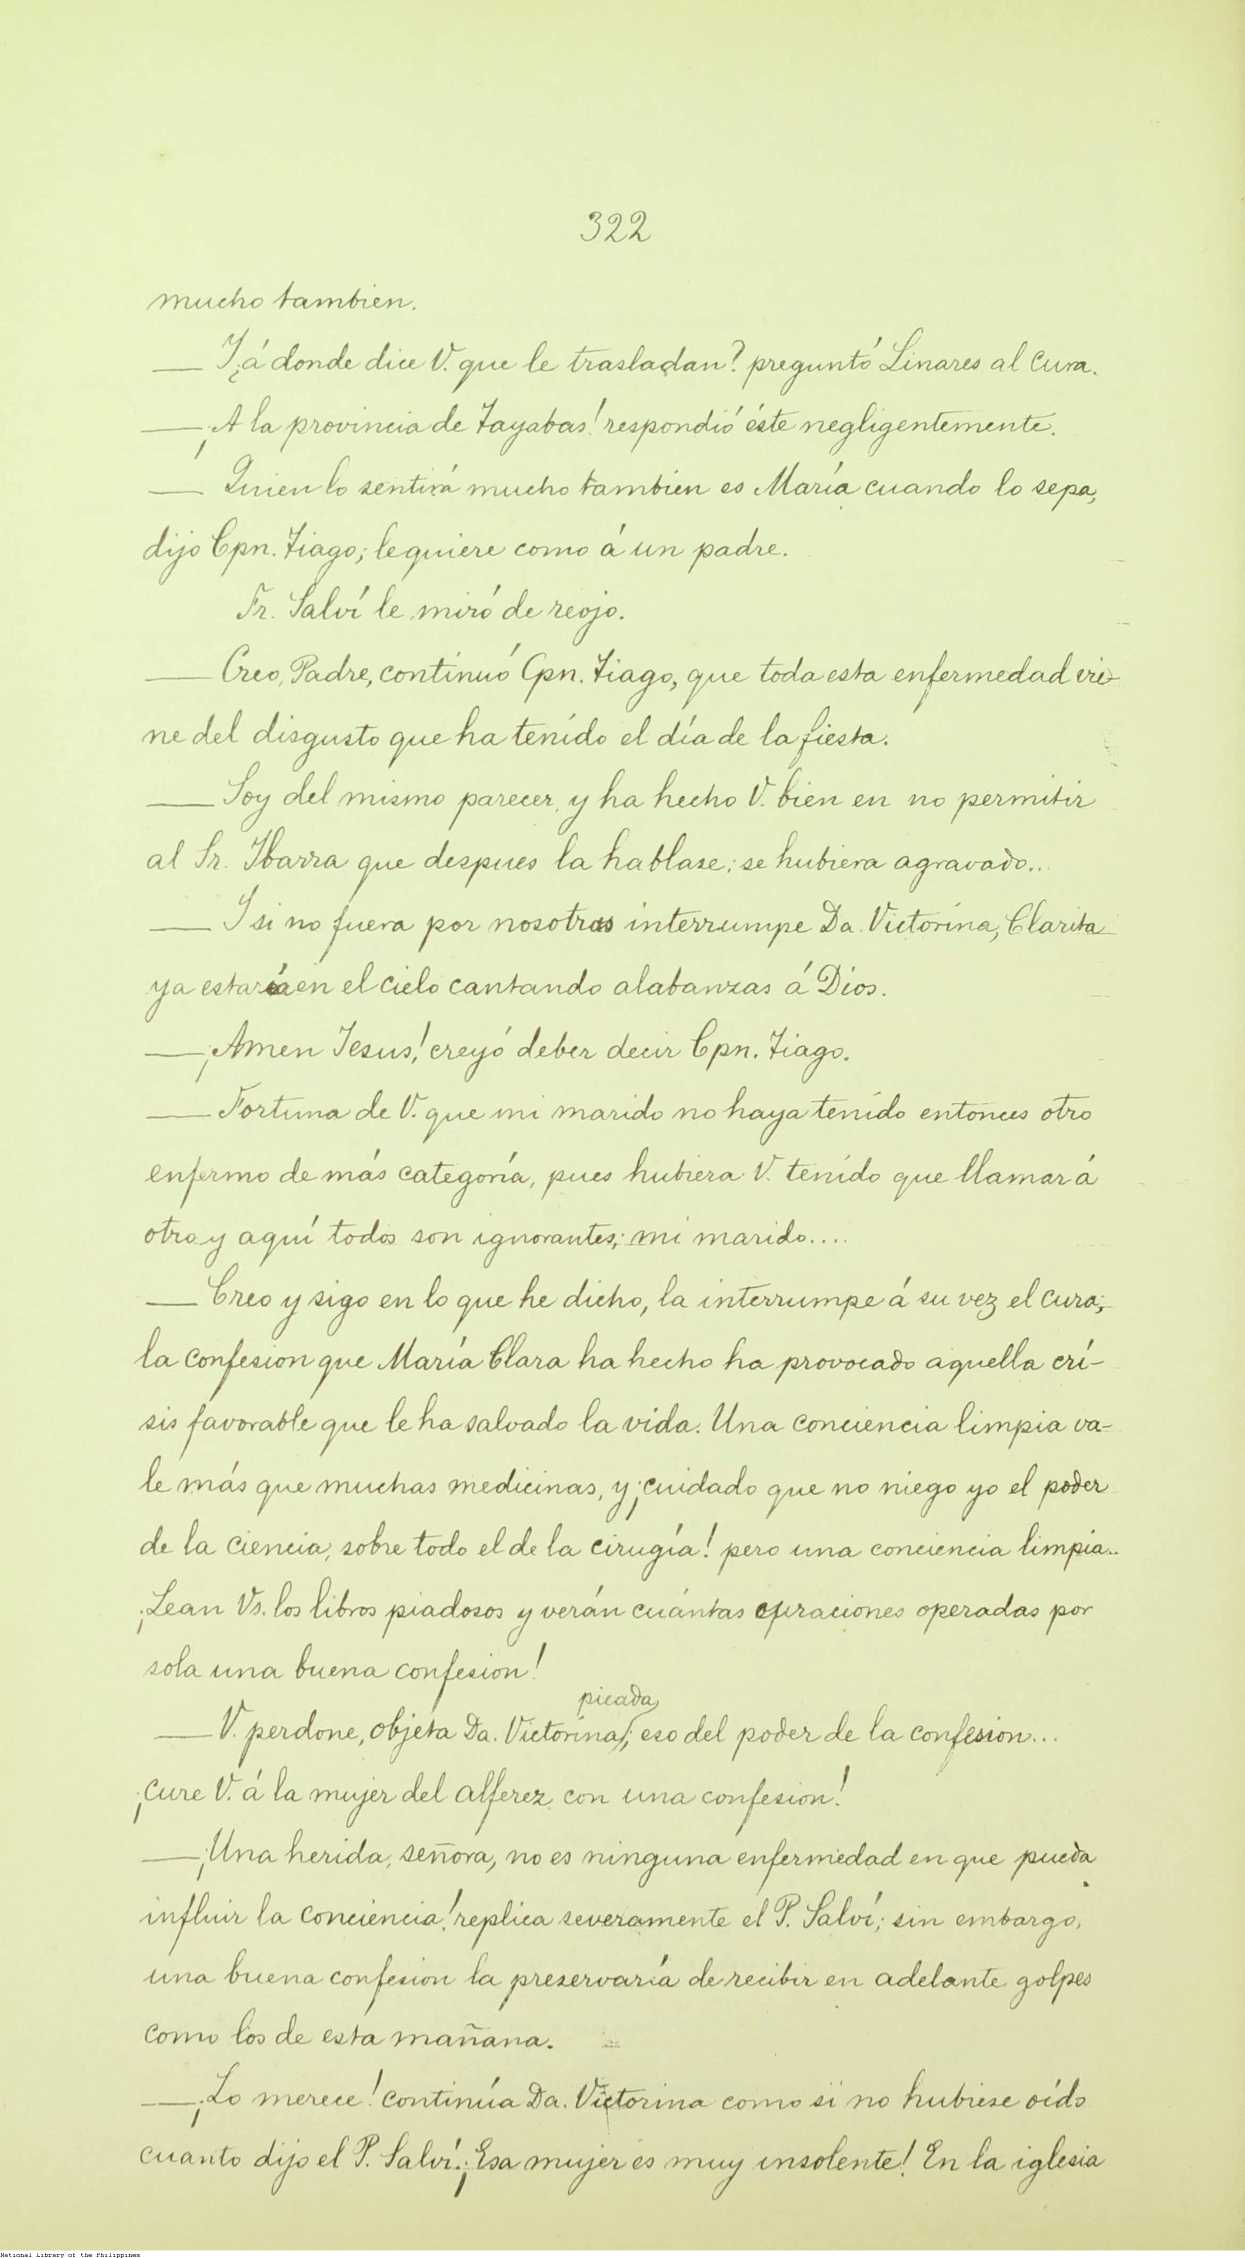 322
mucho tambien.
— Y ¿á donde dice V. que le trasladan? preguntó Linares al cura.
— ¡A la provincia de Tayabas! respondió éste negligentemente.
— Quien lo sentirá mucho tambien es María cuando lo sepa,
dijo Cpn. Tiago; le quiere como á un padre.
Fr. Salví le miró de reojo.
— Creo, Padre, continuó Cpn. Tiago, que toda esta enfermedad vie-
ne del disgusto que ha tenido el día de la fiesta.
— Soy del mismo parecer, y ha hecho V. bien en no permitir
al Sr. Ibarra que despues la hablase; se hubiera agravado...
— Y si no fuera por nosotros interrumpe Da. Victorina, Clarita
ya estaría en el cielo cantando alabanzas á Dios.
— ¡Amen Jesus! creyó deber decir Cpn. Tiago.
— Fortuna de V. que mi marido no haya tenido entonces otro
enfermo de más categoría, pues hubiera V. tenido que llamar á
otro y aquí todos son ignorantes; mi marido....
— Creo y sigo en lo que he dicho, la interrumpe á su vez el cura;
la confesion que María Clara ha hecho ha provocado aquella crí-
sis favorable que le ha salvado la vida. Una conciencia limpia va-
le más que muchas medicinas, y ¡cuidado que no niego yo el poder
de la ciencia, sobre todo el de la cirugía! pero una conciencia limpia..
¡Lean Vs. los libros piadosos y verán cuántas curaciones operadas por
sola una buena confesion!
picada
— V. perdone, objeta Da. Victorina; eso del poder de la confesion...
¡cure V. á la mujer del alferez con una confesion!
— ¡Una herida, señora, no es ninguna enfermedad en que pueda
influir la conciencia! replica severamente el P. Salví; sin embargo,
una buena confesion la preservaría de recibir en adelante golpes
como los de esta mañana.
— ¡Lo merece! continúa Da. Victorina como si no hubiese oído
cuanto dijo el P. Salví. ¡Esa mujer es muy insolente! En la iglesia
National Library of the Philippines